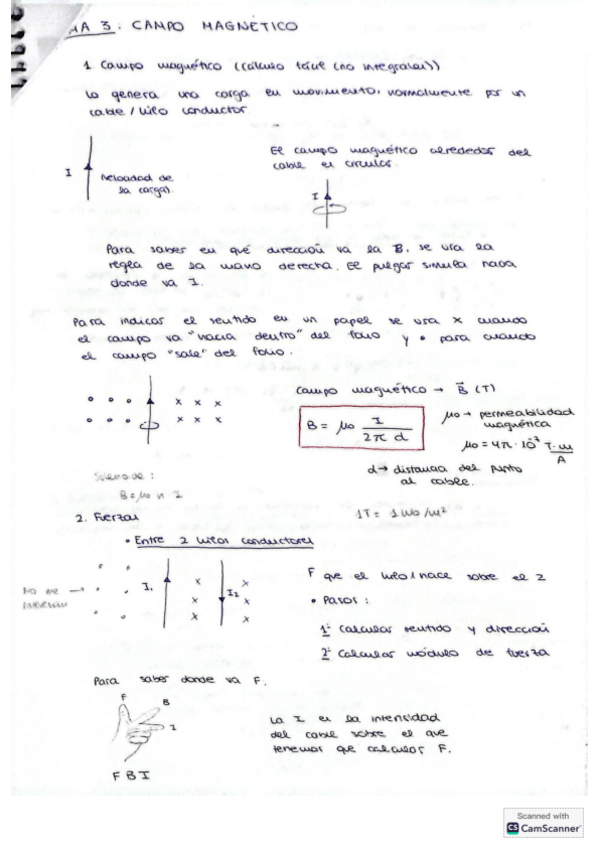 MA 3: CAMPO MAGNÉTICO
1. Campo magnético (cálculo fácil (no integrales))
Lo genera una carga en movimiento, normalmente por un
cable / hilo conductor
I
(velocidad de
la carga)
El campo magnético alrededor del
cable es circular.
I
Para saber en qué dirección va la B, se usa la
regla de la mano derecha. El pulgar simula hacia
donde va I.
Para indicar el sentido en un papel se usa x cuando
el campo va "hacia dentro" del folio y • para cuando
el campo "sale" del folio.
x x x
x x x
Campo magnético → B⃗ (T)
B = μ0 I / 2π d
μ0 → permeabilidad
magnética
μ0 = 4π · 10⁻⁷ T·m / A
d → distancia del punto
al cable.
Solenoide:
B = μ0 n I
1T = 1Wb/m²
2. Fuerzas
• Entre 2 hilos conductores
No me →
interesan
I₁
x x
x x
x x
I₂
F que el hilo 1 hace sobre el 2
• Pasos:
1º Calcular sentido y dirección
2º Calcular módulo de fuerza
Para saber donde va F.
F
B
I
F B I
La I es la intensidad
del cable sobre el que
tenemos que calcular F.
Scanned with
CS CamScanner